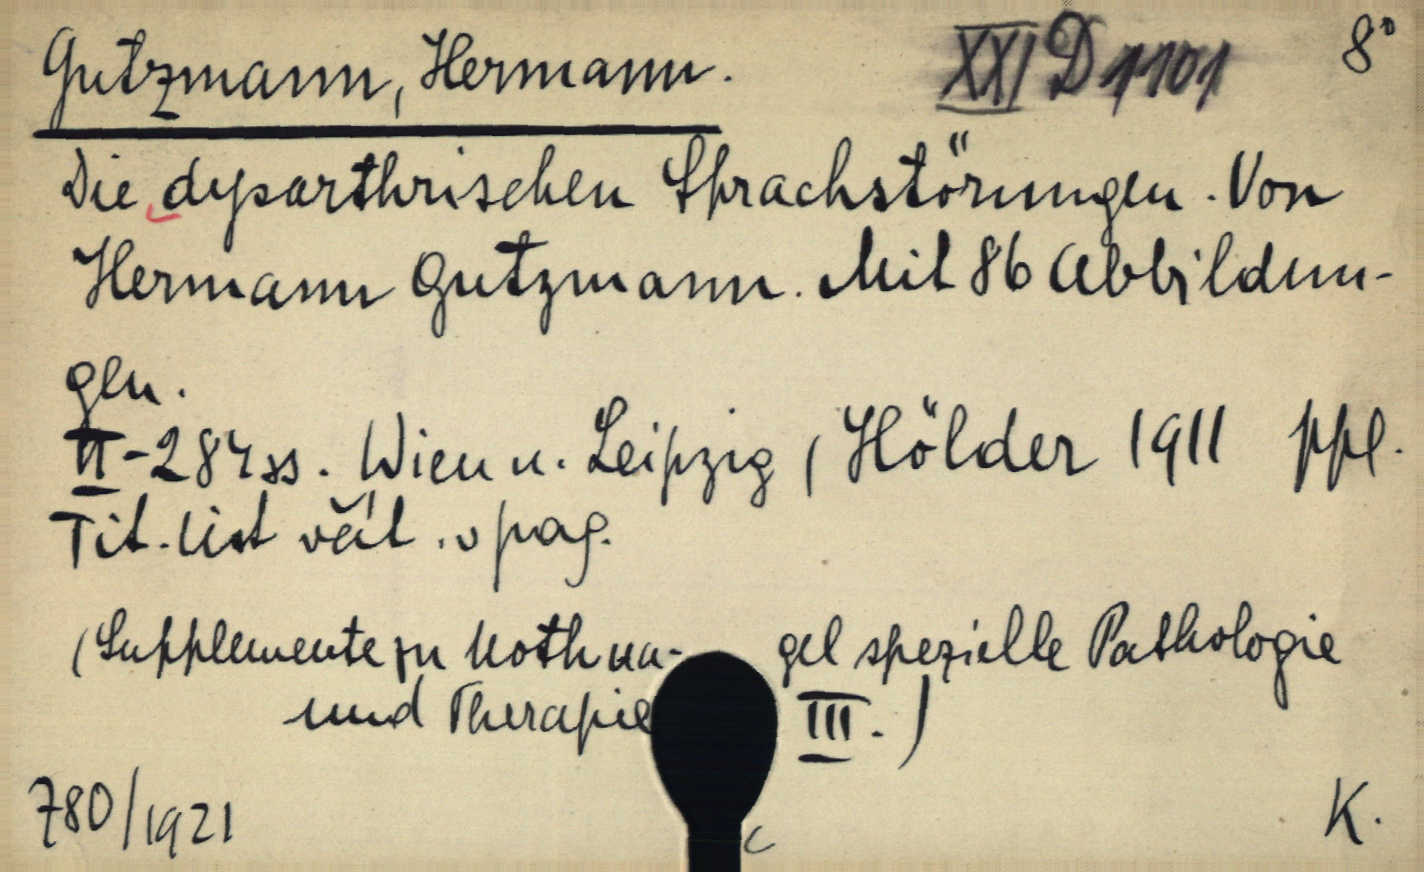 Gutzmann, Hermann. XXI D 1101 8°
Die dysarthrischen Sprachstörungen. Von
Hermann Gutzmann. Mit 86 Abbildun-
gen.
II-284 ss. Wien u. Leipzig, Hölder 1911 ppl.
Tit. list včít. v pag.
(Supplemente zu Nothna- gel spezielle Pathologie
und Therapie III.)
780/1921 K.